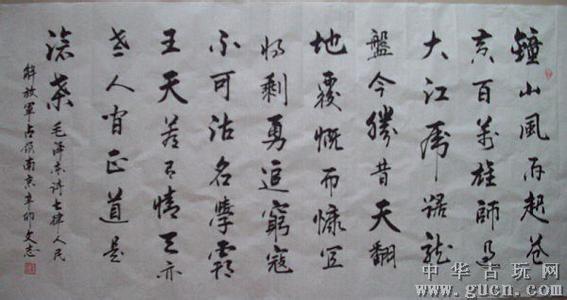 鍾山風雨起蒼
黃百萬雄師過
大江虎踞龍
盤今勝昔天翻
地覆慨而慷宜
將剩勇追窮寇
不可沽名學霸
王天若有情天亦
老人間正道是
滄桑 毛澤東詩七律人民
解放軍占領南京辛卯文志
中华古玩网
www.gucn.com